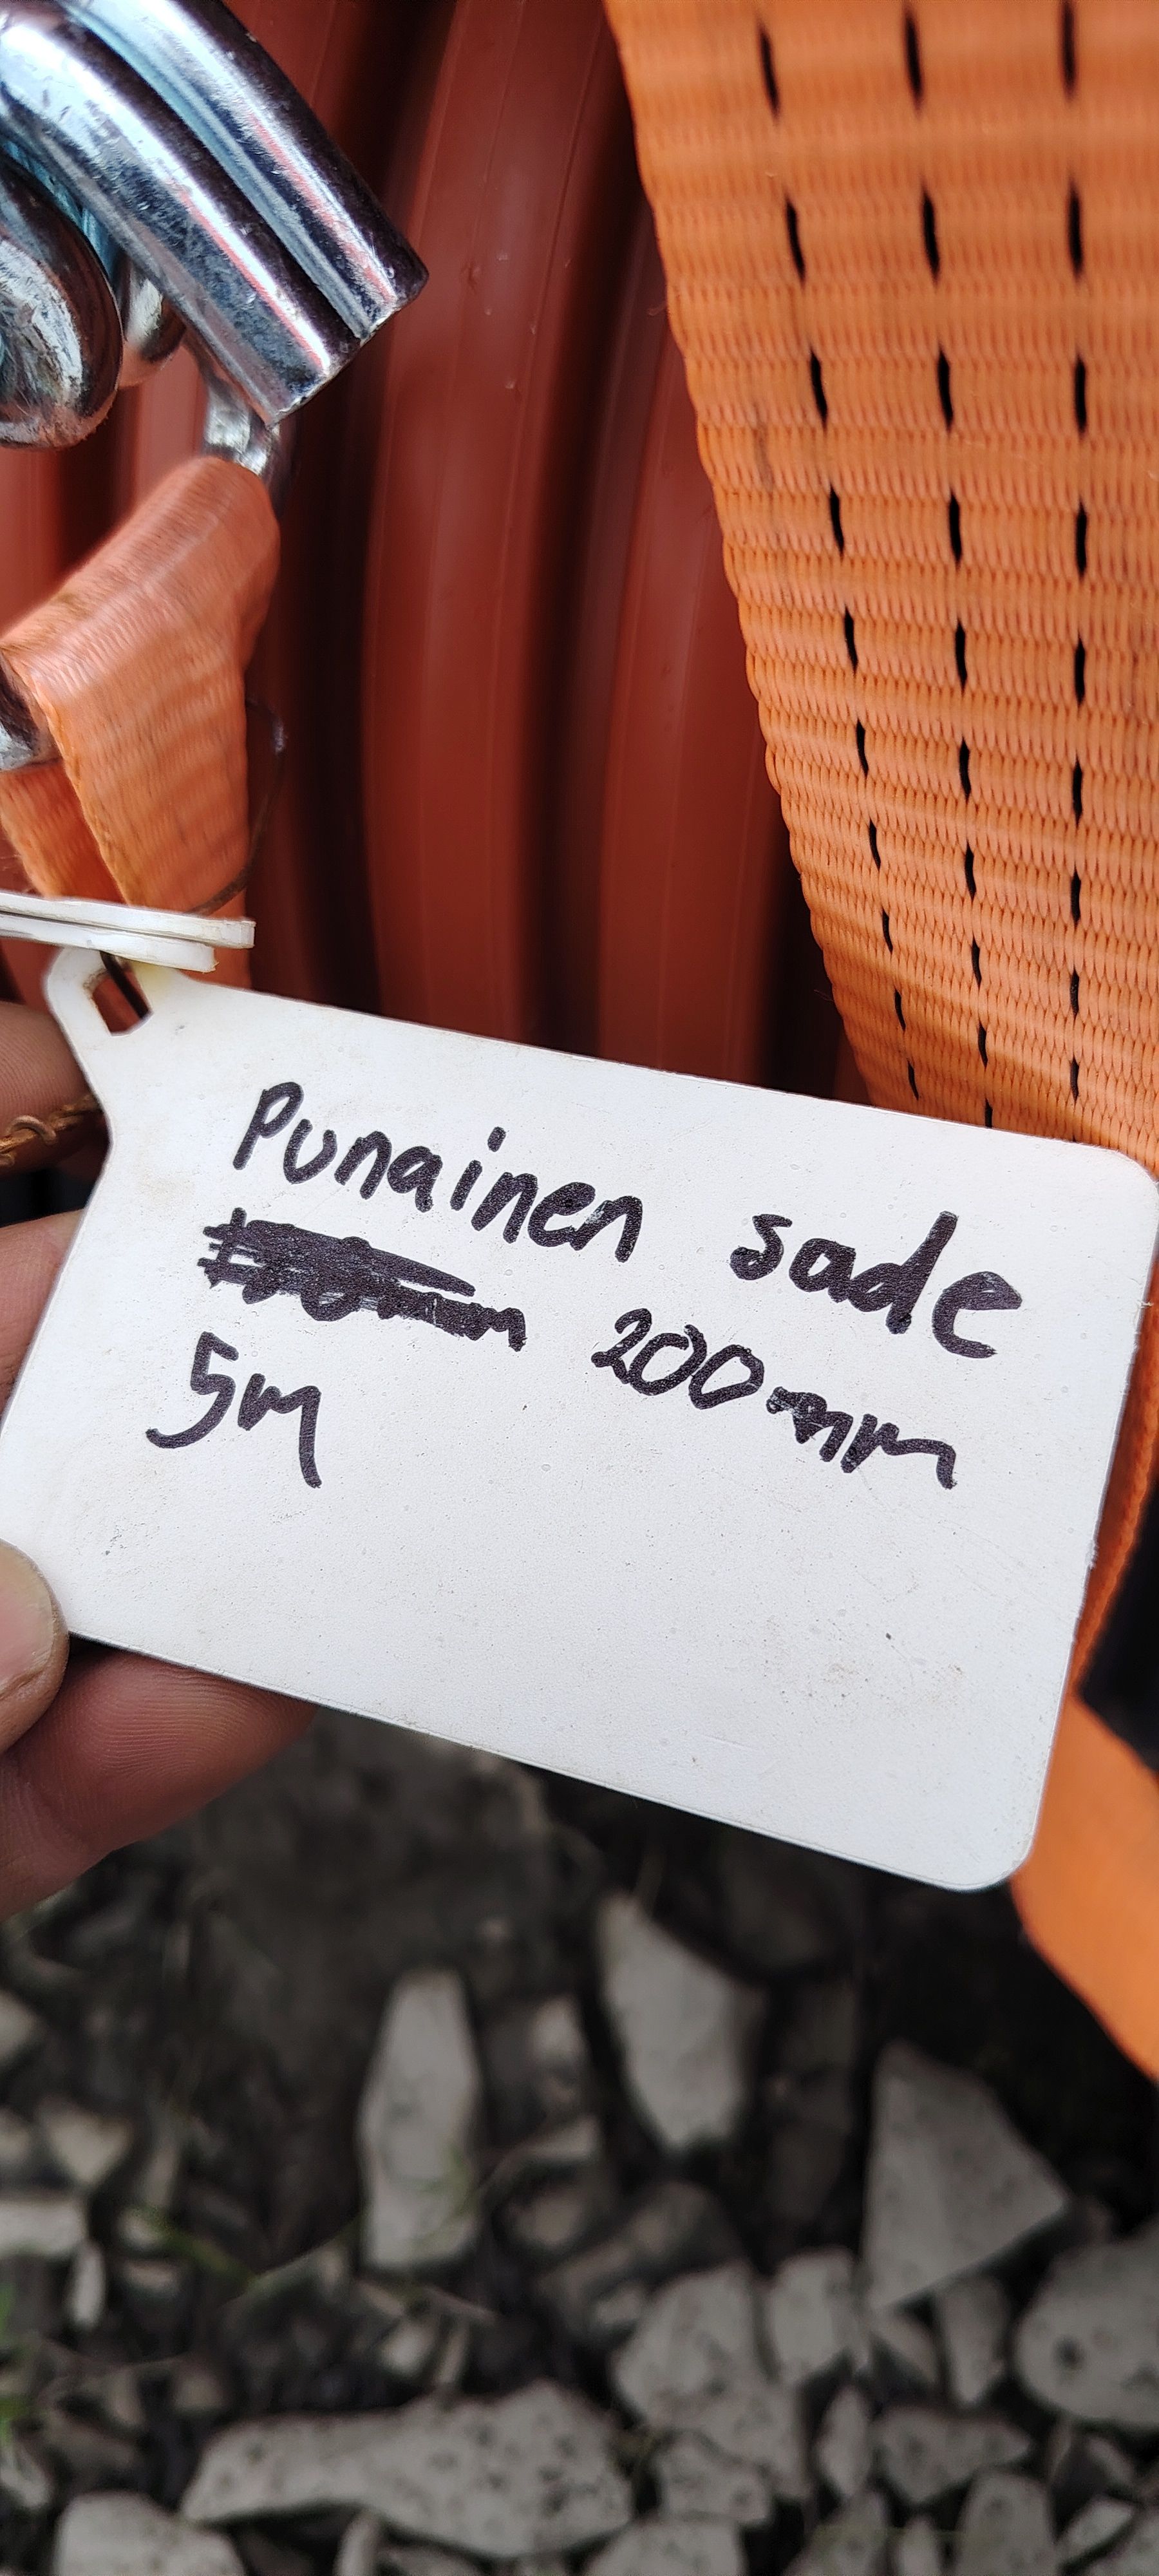 Punainen sade
200mm
5m